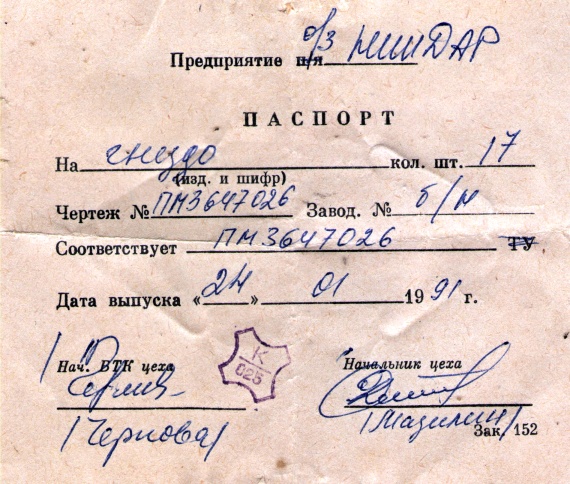 Предприятие п/я о/з НИИДАР
ПАСПОРТ
На гнездо кол. шт. 17
(изд. и шифр)
Чертеж № ПМ3647026 Завод. № б/н
Соответствует ПМ3647026 ТУ
Дата выпуска «24» 01 1991 г.
Нач. БТК цеха Начальник цеха
К
025
/Чернова/ /Мазилин/
Зак. 152